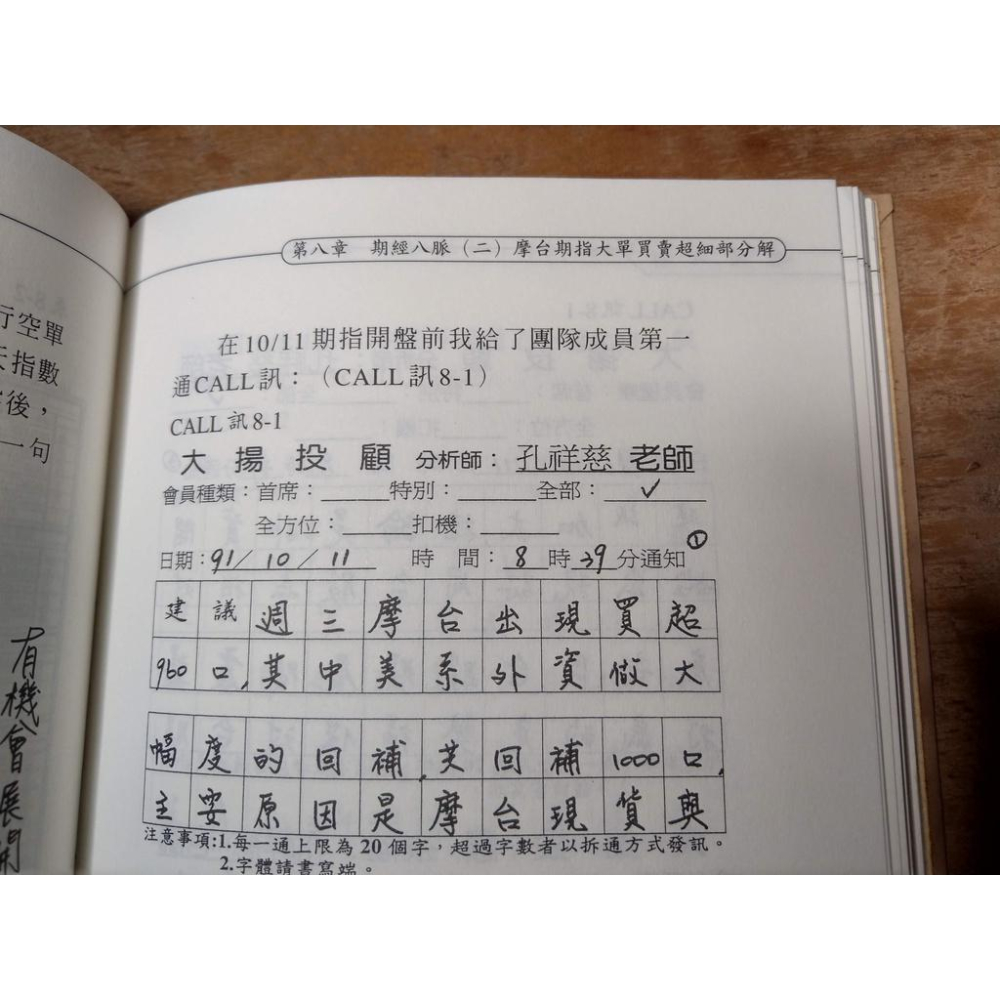 行空單
天指數
後，
一句
有機會展開
第八章　期經八脈（二）摩台期指大單買賣超細部分解
在10/11期指開盤前我給了團隊成員第一
通CALL訊：（CALL訊8-1）
CALL訊8-1
大揚投顧 分析師：孔祥慈 老師
會員種類：首席：______特別：______全部：✓
全方位：______扣機：______
日期：91/10/11 時間：8時39分通知①
建議週三摩台出現買超
960口，其中美系外資做大
幅度的回補，共回補1000口，
主要原因是摩台現貨與
注意事項:1.每一通上限為20個字，超過字數者以拆通方式發訊。
2.字體請書寫端。